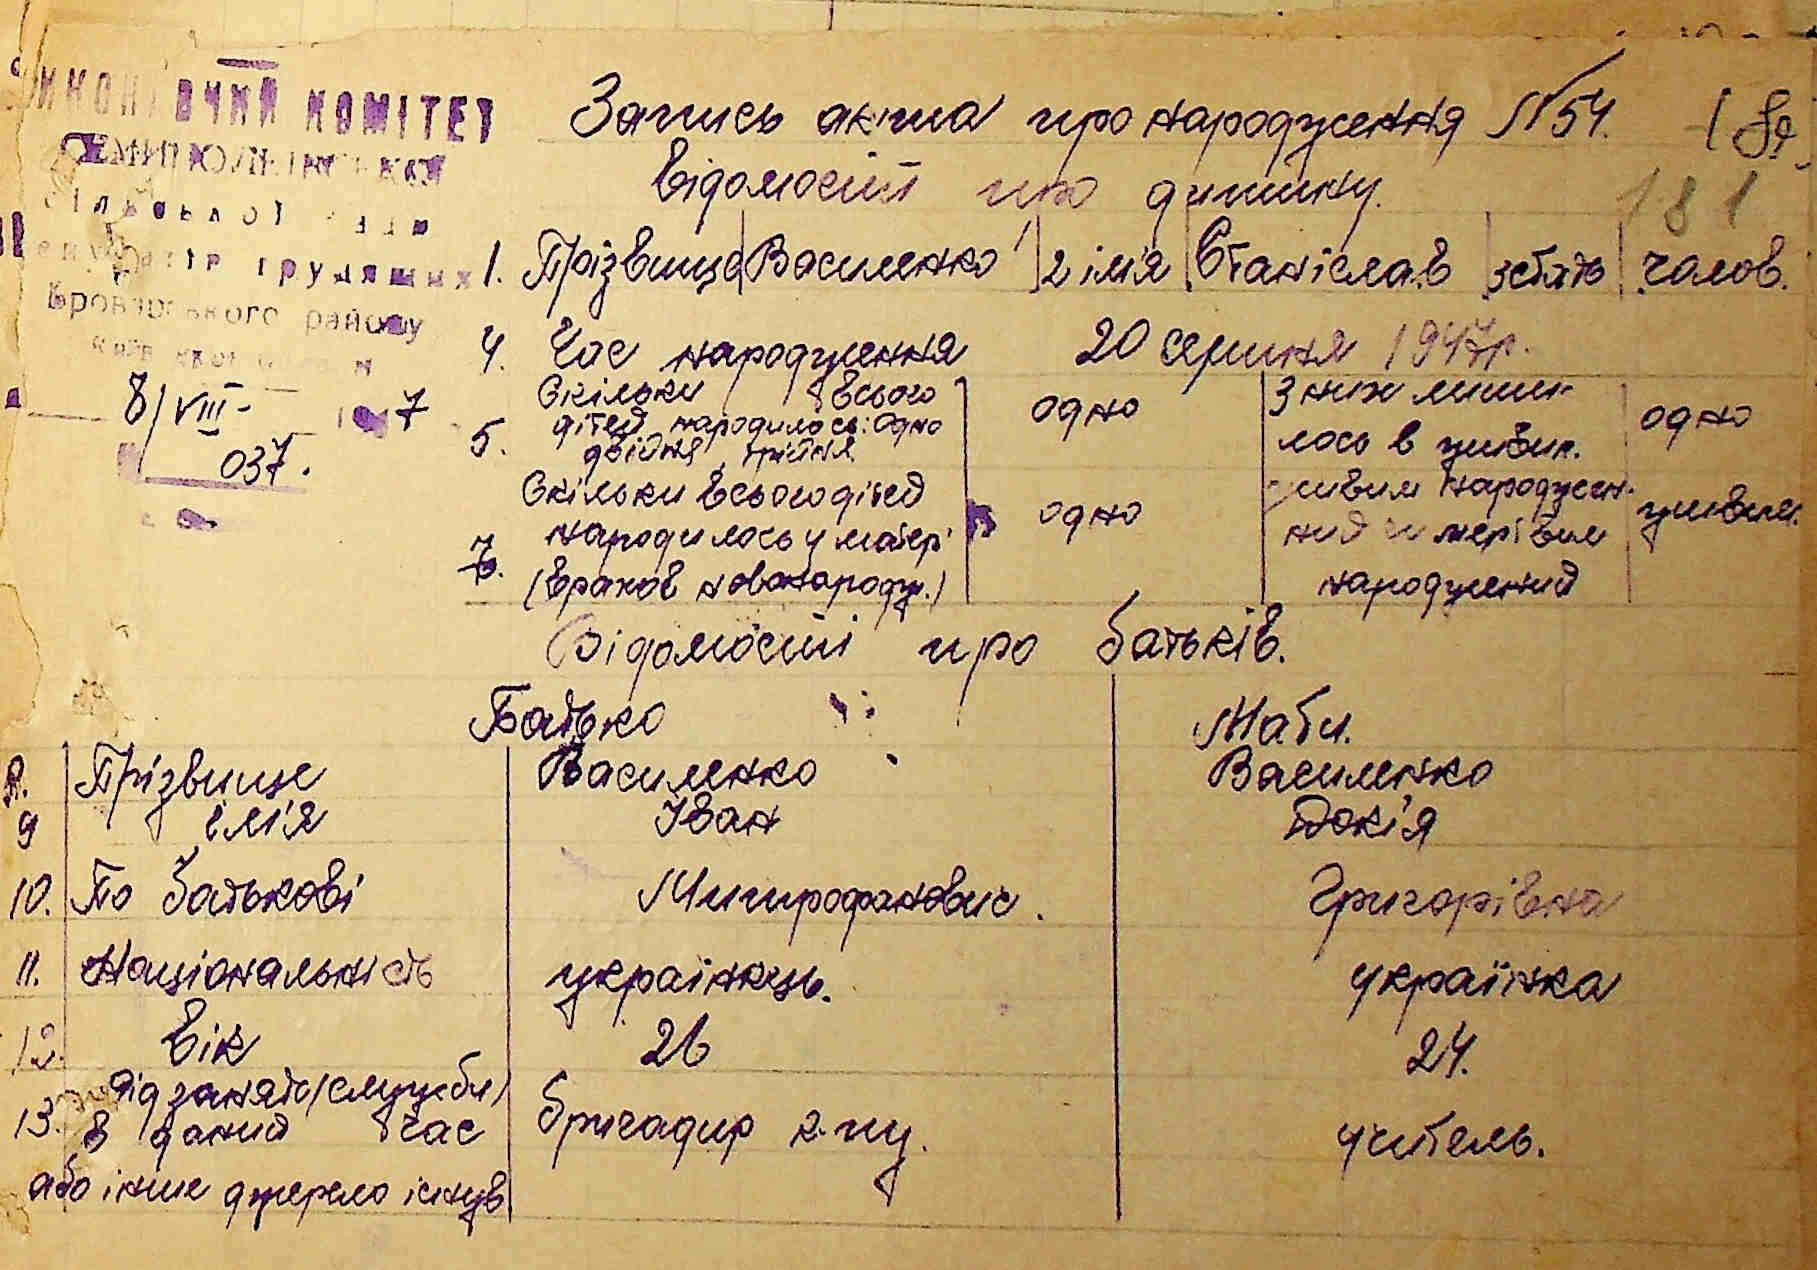 ВИКОНАВЧИЙ КОМІТЕТ
СЕМИПОЛКІВСЬКОЇ
сільської ради
депутатів трудящих
Броварського району
8/VIII- 1947
037.
Запись акта про народження №54.
181
Відомості про дитину.
1. Прізвище Василенко 2 ім'я Станіслав 3 стать чолов.
4. Час народження 20 серпня 1947р.
5. Скільки всього дітей народилось: одно двійня, трійня одно З них лиши- лось в живих. одно
7. Скільки всього дітей народилось у матері (врахов новонародж.) одно живим народжен- ний чи мертвим народжений живим.
Відомості про батьків.
Батько Мати.
8. Прізвище Василенко Василенко
9 ім'я Іван Докія
10. По батькові Митрофанович. Григорівна
11. Національність українець. українка
12. Вік 26 24.
13. Рід занять (служби) в даний час бригадир к-пу. учитель.
або інше джерело існув